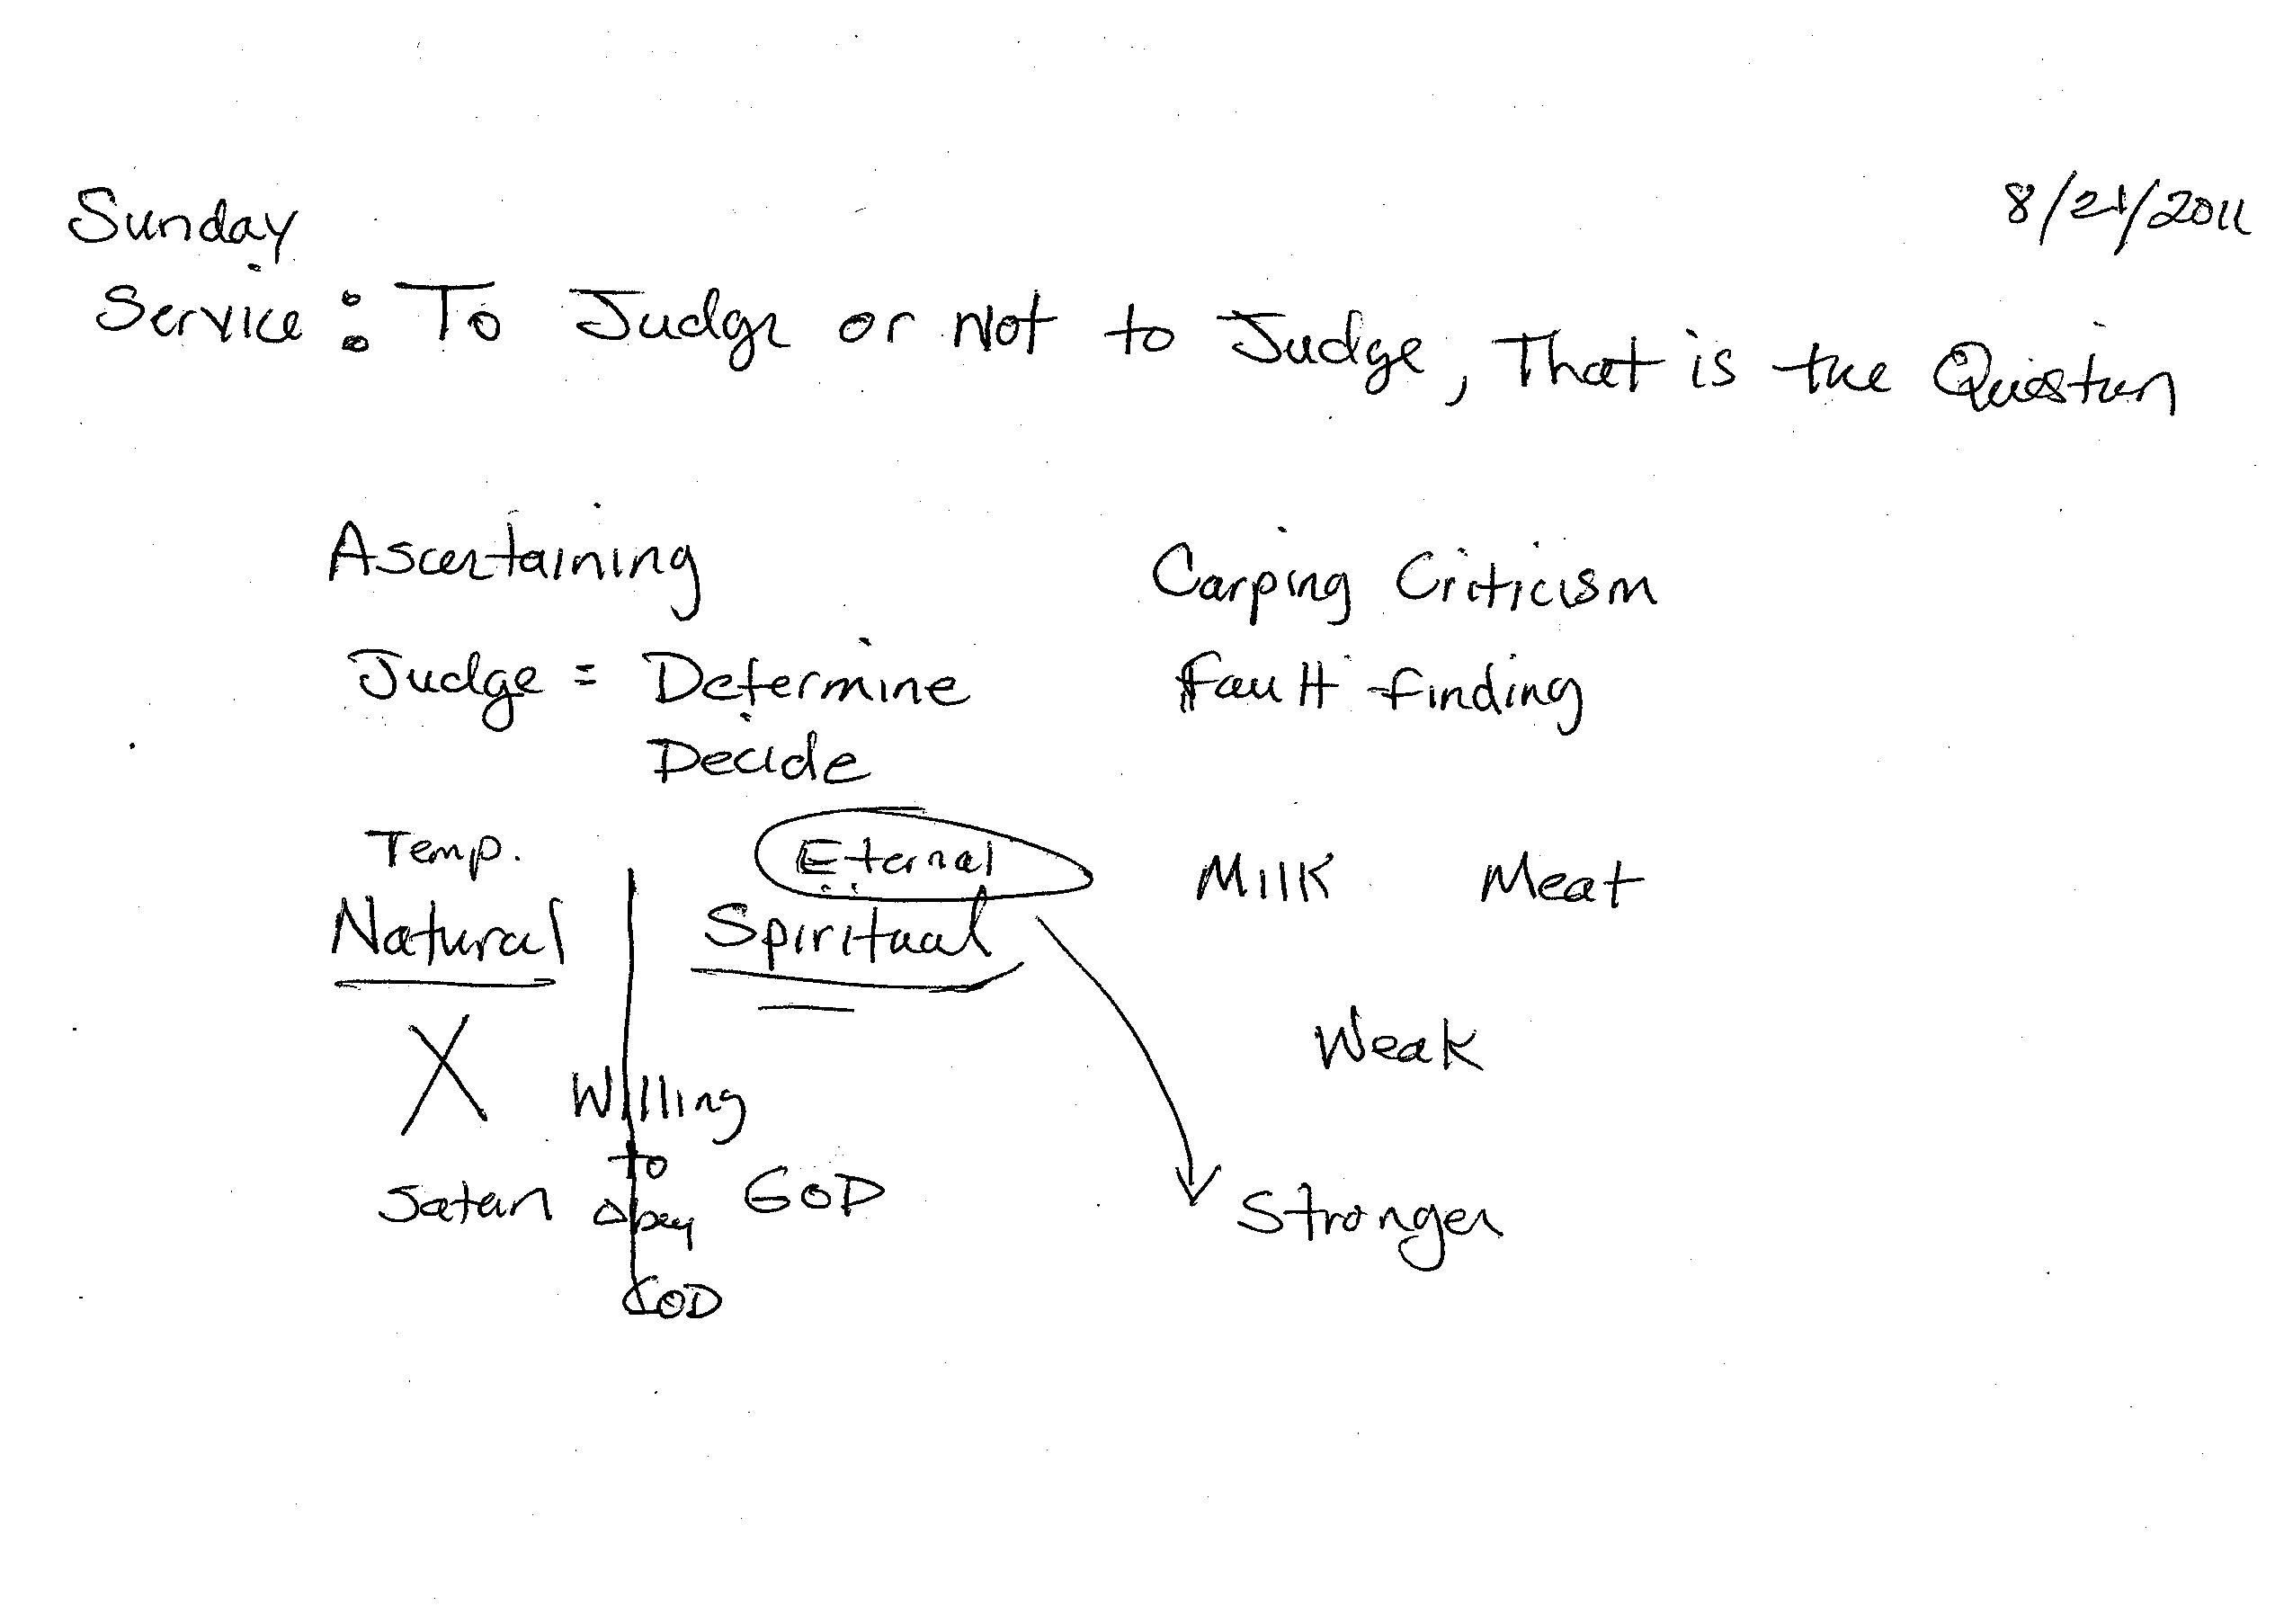 8/21/2011
Sunday
Service: To Judge or Not to Judge, That is the Question
Ascertaining
Carping Criticism
Judge = Determine
Fault finding
Decide
Temp.
Eternal
Milk Meat
Natural
Spiritual
X
Weak
Willing
to
Satan
Obey
GOD
Stronger
GOD